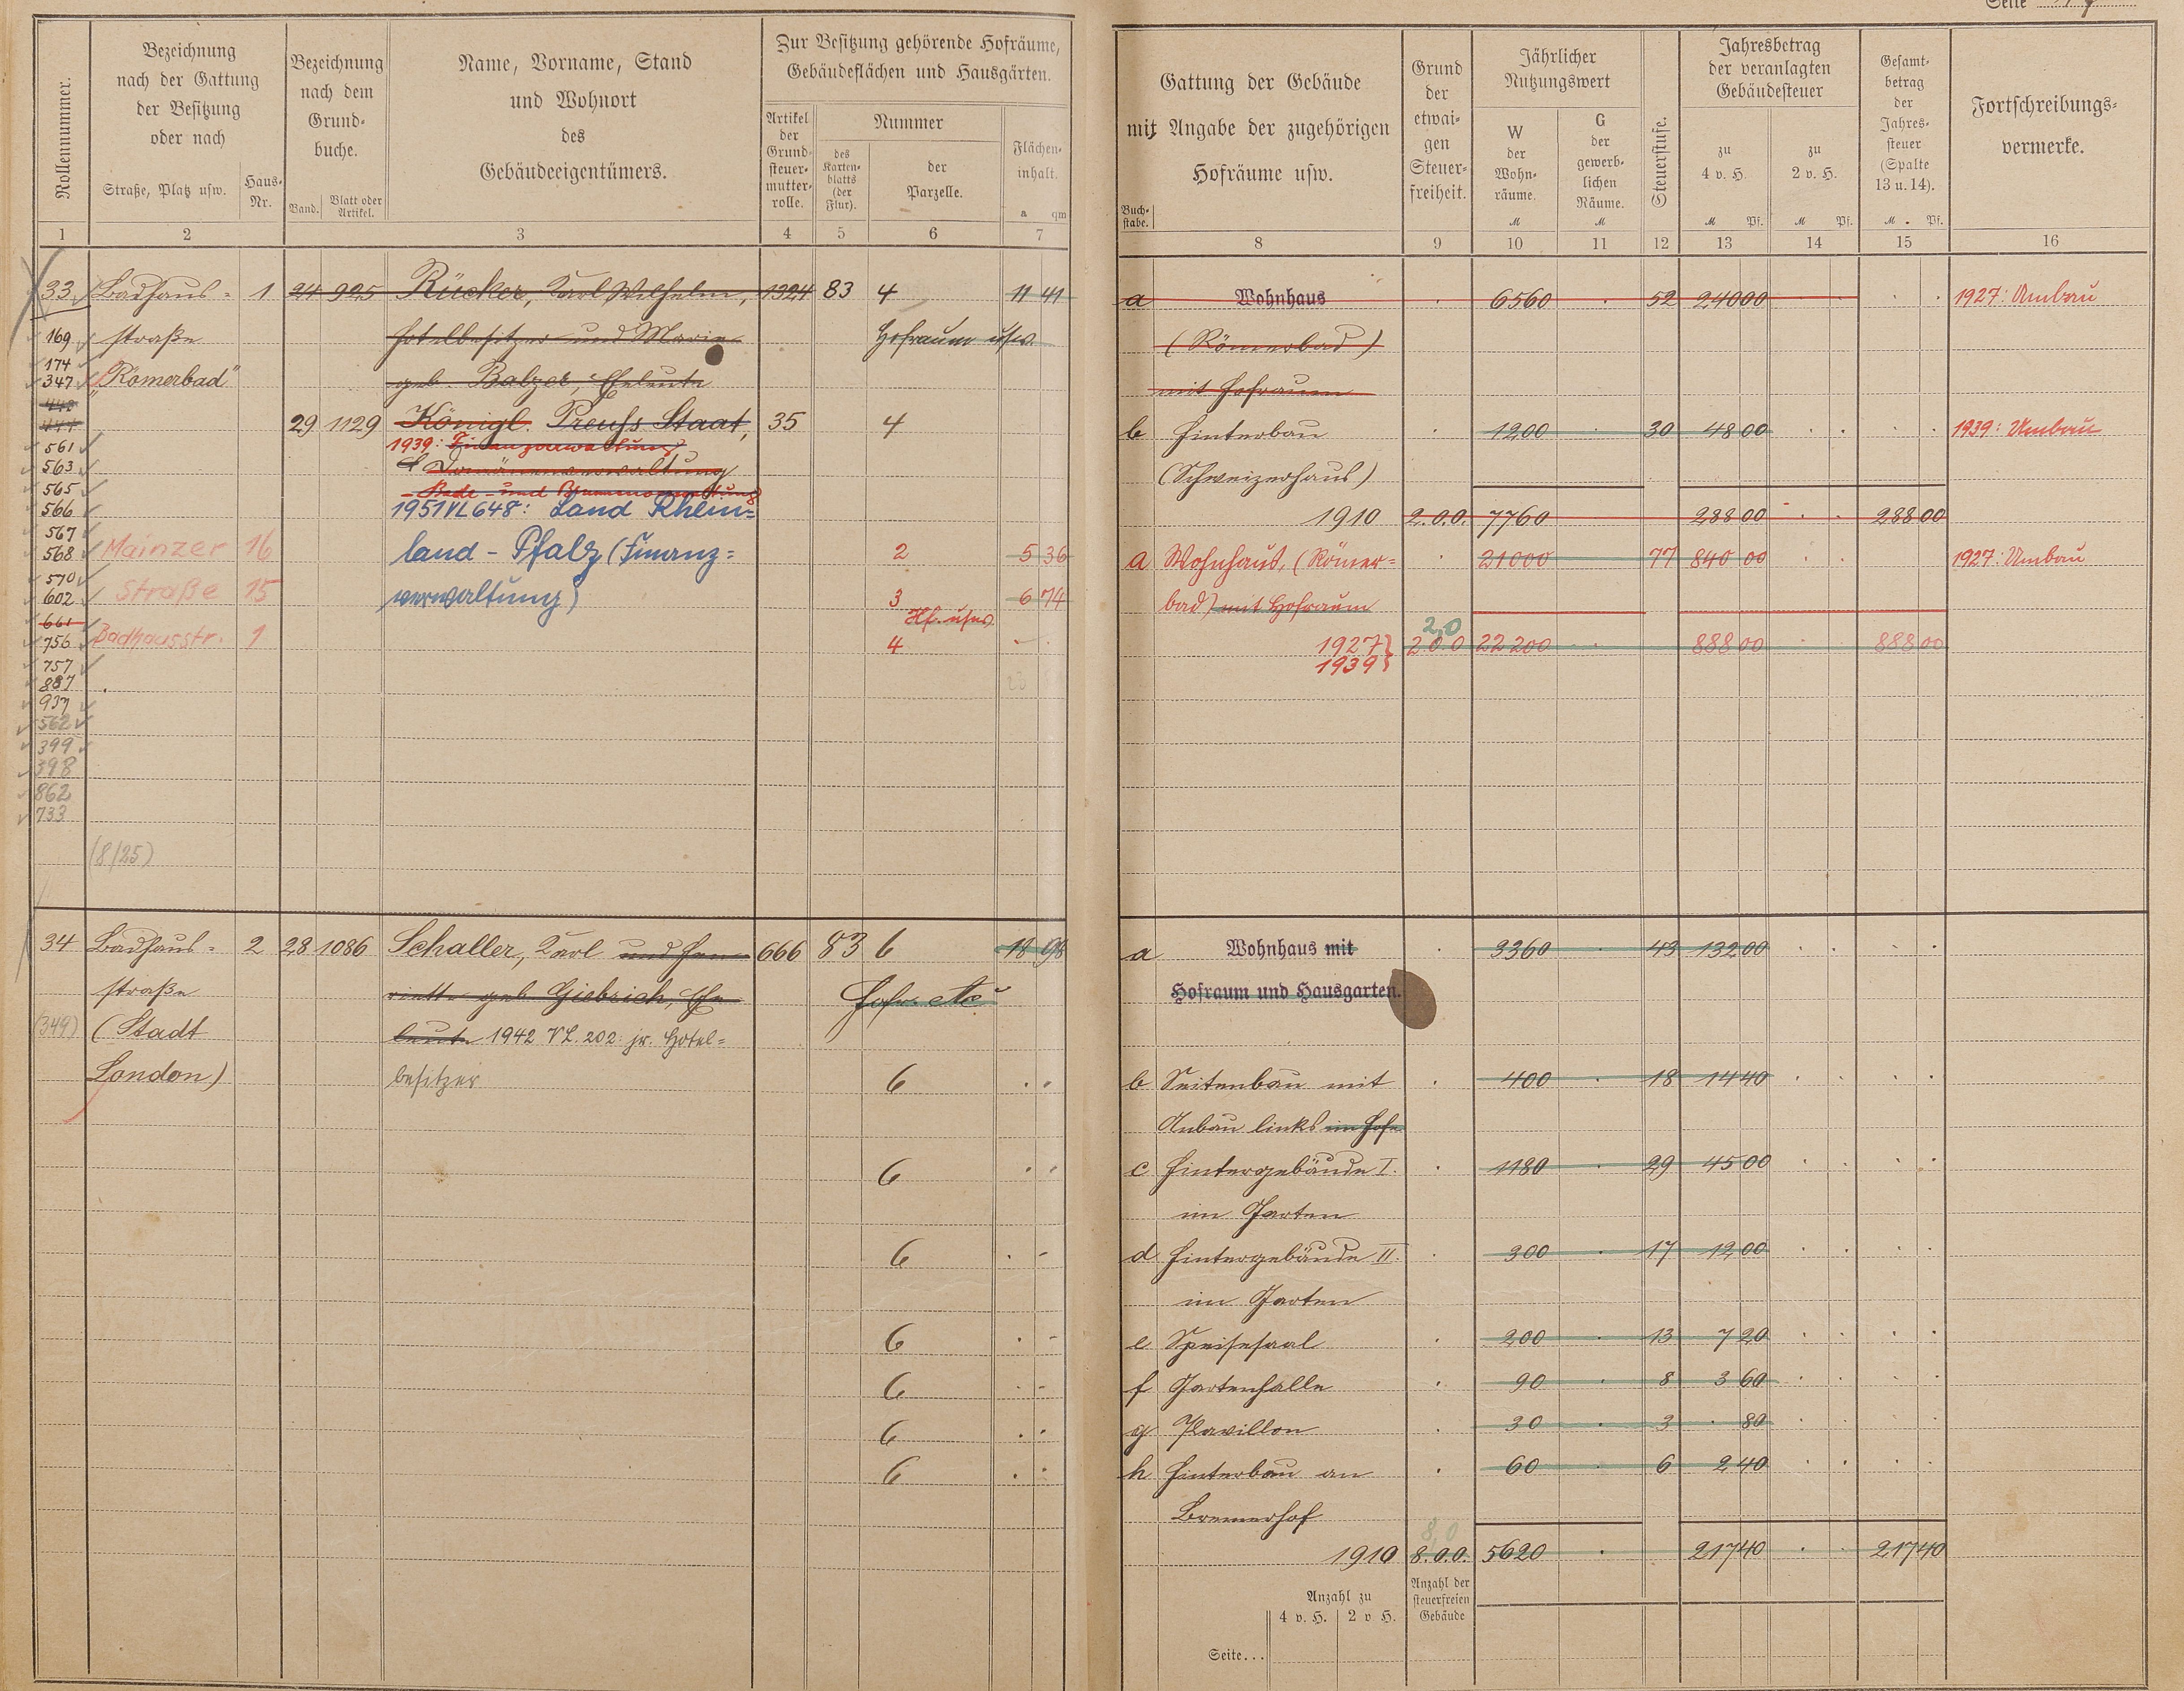 Seite
Rollennummer.
Bezeichnung
nach der Gattung
der Besitzung
oder nach
Straße, Platz usw.
Haus-
Nr.
Bezeichnung
nach dem
Grund-
buche.
Band.
Blatt oder
Artikel.
Name, Vorname, Stand
und Wohnort
des
Gebäudeeigentümers.
Zur Besitzung gehörende Hofräume,
Gebäudeflächen und Hausgärten.
Artikel
der
Grund-
steuer-
mutter-
rolle.
Nummer
des
Karten-
blatts
(der
Flur).
der
Parzelle.
Flächen-
inhalt.
a qm
1 2 3 4 5 6 7
33 Badhaus- 1 24 925 Rücker, Karl Wilhelm, 1324 83 4 11 41
169 straße Hotelbesitzer und Marie Hofraum usw.
174
347 "Römerbad" geb. Balzer, Eheleute
29 1129 Königl. Preuß. Staat, 35 4
561 1939: Finanzverwaltung
563 Domänenverwaltung
565 - Bade- und Brunnenverwaltung
566 1951 VL 648: Land Rhein-
567
568 Mainzer 16 land - Pfalz (Finanz- 2 5 36
570
602 Straße 15 verwaltung) 3 6 74
661 Hf. usw.
756 Badhausstr. 1 4
757
887
937
562
399
398
862
733
(8/25)
34 Badhaus- 2 28 1086 Schaller, Karl und Hen- 666 83 6 18 98
straße riette geb. Giebrich, Ehe- Hofr. etc
(349) (Stadt leute 1942 VL. 202: jr. Hotel-
London) besitzer 6
6
6
6
6
6
6
Buch-
stabe.
Gattung der Gebäude
mit Angabe der zugehörigen
Hofräume usw.
Grund
der
etwai-
gen
Steuer-
freiheit.
Jährlicher
Nutzungswert
W
der
Wohn-
räume.
M
G
der
gewerb-
lichen
Räume.
M
Steuerstufe.
Jahresbetrag
der veranlagten
Gebäudesteuer
zu
4 v. H.
M Pf.
zu
2 v. H.
M Pf.
Gesamt-
betrag
der
Jahres-
steuer
(Spalte
13 u. 14).
M Pf.
Fortschreibungs-
vermerke.
8 9 10 11 12 13 14 15 16
a Wohnhaus 6560 52 240 00 1927: Umbau
(Römerbad)
mit Hofraum
b Hinterbau 1200 30 48 00 1939: Umbau
(Schweizerhaus)
1910 2.0.0. 7760 288 00 288 00
a Wohnhaus, (Römer- 21000 77 840 00 1927: Umbau
bad) mit Hofraum
2,0
1927} 2 0 0 22 200 888 00 888 00
1939}
a Wohnhaus mit 3360 43 132 00
Hofraum und Hausgarten.
b Seitenbau mit 400 18 14 40
Anbau links im Hofe
c Hintergebäude I. 1180 29 45 00
im Garten
d Hintergebäude II. 300 17 12 00
im Garten
e Speisesaal 200 13 7 20
f Gartenhalle 90 8 3 60
g Pavillon 30 3 80
h Hinterbau am 60 6 2 40
Bremerhof
8,0
1910 8.0.0. 5620 217 40 217 40
Anzahl zu
4 v. H. 2 v H.
Anzahl der
steuerfreien
Gebäude
Seite...